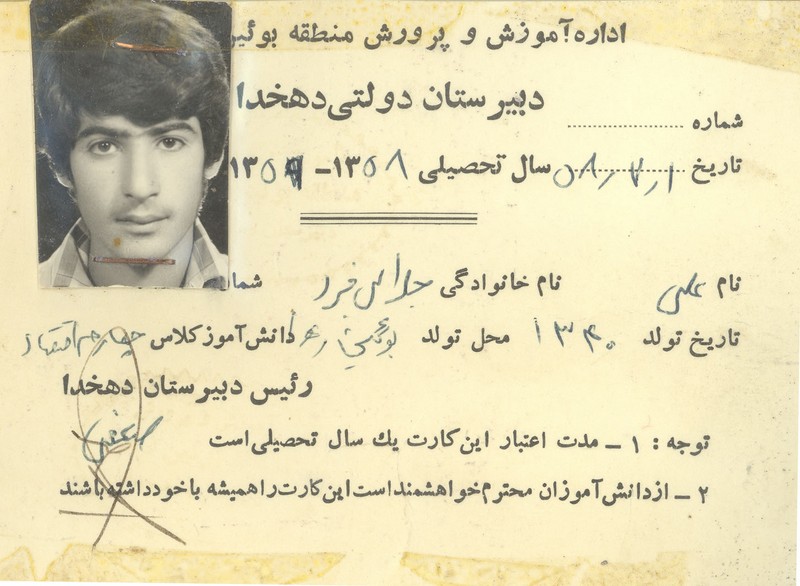 اداره آموزش و پرورش منطقه بوئین
دبیرستان دولتی دهخدا
شماره ....................
تاریخ ۵۸٫۷٫۱ سال تحصیلی ۱۳۵۸ – ۱۳۵۷
نام علی نام خانوادگی جلالی فرد شما
تاریخ تولد ۱۳۴۰ محل تولد دانش آموز کلاس چهارم اقتصاد
رئیس دبیرستان دهخدا
توجه : ۱ – مدت اعتبار این کارت یك سال تحصیلی است
۲ – از دانش آموزان محترم خواهشمند است این کارت را همیشه با خود داشته باشند